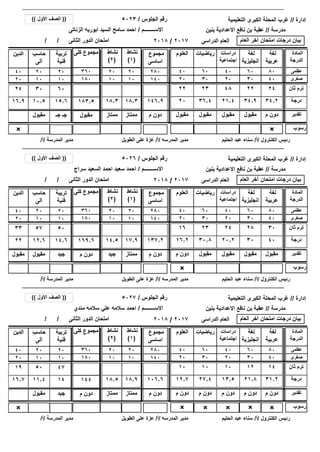 إدارة // غرب المحلة الكبرى التعليمية رقم الجلوس / ٥٠٢٣ (( الصف الأول ))
مدرسة // عقبة بن نافع الاعدادية بنين الاســـــــم / احمد سامح السيد ابوزيد الزناتى
بيان درجات امتحان آخر العام العام الدراسى ٢٠١٧ / ٢٠١٨ امتحان الدور الثانى / /
المادة الدرجة لغة عربية لغة انجليزية دراسات اجتماعية رياضيات العلوم مجموع اساسى نشاط (١) نشاط (٢) مجموع كلى تربية فنية حاسب الى الدين
عظمى ٨٠ ٦٠ ٤٠ ٦٠ ٤٠ ٢٨٠ ٢٠ ٢٠ ٣٦٠ ٢٠ ٢٠ ٤٠
صغرى ٤٠ ٣٠ ٢٠ ٣٠ ٢٠ ١٤٠ ١٠ ١٠ ١٨٠ ١٠ ١٠ ٢٠
ترم ثان ٢٤ ٢٢ ٤٨ ٢٣ ٢٢ ٦٠ ٣٠ ٢٤
درجة ٣٤,٢ ٣٤,٩ ٢١,٤ ٣٦,٤ ٢٠ ١٤٦,٩ ١٨,٣ ١٨,٣ ١٨٣,٥ ١٥,٦ ١٠,٥ ١٦,٩
تقدير دون م مقبول مقبول مقبول مقبول دون م ممتاز ممتاز مقبول جـ جـ مقبول مقبول
رسوب × ×
رئيس الكنترول // سناء عبد الحليم مدير المدرسه // عزة على الطويل مدير المدرسة //
إدارة // غرب المحلة الكبرى التعليمية رقم الجلوس / ٥٠٢٦ (( الصف الأول ))
مدرسة // عقبة بن نافع الاعدادية بنين الاســـــــم / احمد سعيد احمد السعيد سراج
بيان درجات امتحان آخر العام العام الدراسى ٢٠١٧ / ٢٠١٨ امتحان الدور الثانى / /
المادة الدرجة لغة عربية لغة انجليزية دراسات اجتماعية رياضيات العلوم مجموع اساسى نشاط (١) نشاط (٢) مجموع كلى تربية فنية حاسب الى الدين
عظمى ٨٠ ٦٠ ٤٠ ٦٠ ٤٠ ٢٨٠ ٢٠ ٢٠ ٣٦٠ ٢٠ ٢٠ ٤٠
صغرى ٤٠ ٣٠ ٢٠ ٣٠ ٢٠ ١٤٠ ١٠ ١٠ ١٨٠ ١٠ ١٠ ٢٠
ترم ثان ٣٠ ٢٨ ٢٤ ٢٣ ١٦ ٥٠ ٥٧ ٣٣
درجة ٤٠ ٣٠ ٢٠,٢ ٣٠,٨ ١٦,٢ ١٣٧,٢ ١٧,٩ ١٤,٥ ١٦٩,٦ ١٤,٦ ١٢,٦ ٢٢
تقدير مقبول مقبول مقبول مقبول دون م دون م ممتاز جيد دون م جيد مقبول مقبول
رسوب ×
رئيس الكنترول // سناء عبد الحليم مدير المدرسه // عزة على الطويل مدير المدرسة //
إدارة // غرب المحلة الكبرى التعليمية رقم الجلوس / ٥٠٢٧ (( الصف الأول ))
مدرسة // عقبة بن نافع الاعدادية بنين الاســـــــم / احمد سلامه على سلامه مندى
بيان درجات امتحان آخر العام العام الدراسى ٢٠١٧ / ٢٠١٨ امتحان الدور الثانى / /
المادة الدرجة لغة عربية لغة انجليزية دراسات اجتماعية رياضيات العلوم مجموع اساسى نشاط (١) نشاط (٢) مجموع كلى تربية فنية حاسب الى الدين
عظمى ٨٠ ٦٠ ٤٠ ٦٠ ٤٠ ٢٨٠ ٢٠ ٢٠ ٣٦٠ ٢٠ ٢٠ ٤٠
صغرى ٤٠ ٣٠ ٢٠ ٣٠ ٢٠ ١٤٠ ١٠ ١٠ ١٨٠ ١٠ ١٠ ٢٠
ترم ثان ١٤ ١٢ ١٠ ١٠ ١٠ ٤٧ ٥٠ ١٩
درجة ٣١,٢ ٢١,٨ ١٣,٥ ٢٧,٤ ١٢,٧ ١٠٦,٦ ١٨,٩ ١٨,٥ ١٤٤ ١٤ ١١,٤ ١٦,٧
تقدير دون م دون م دون م دون م دون م دون م ممتاز ممتاز دون م جيد مقبول دون م
رسوب × × × × × ×
رئيس الكنترول // سناء عبد الحليم مدير المدرسه // عزة على الطويل مدير المدرسة //